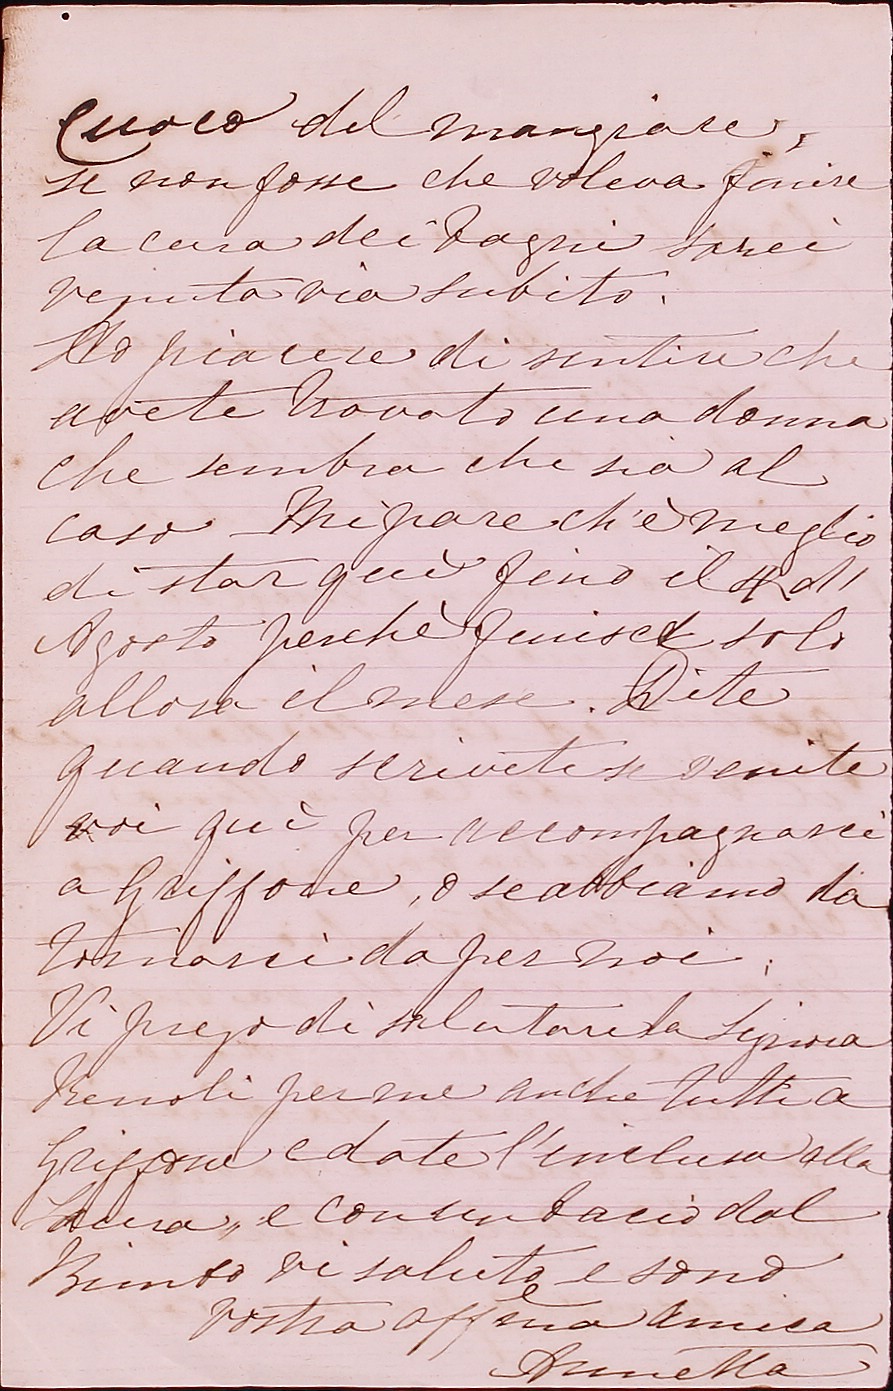 Cuoco del mangiare,
se non fosse che voleva finire
la cura dei bagni sarei
venuta via subito.
Ho piacere di sentire che
avete trovato una donna
che sembra che sia al
caso Mi pare ch'è meglio
di star quì fino il 4 dll
Agosto perchè finisce solo
allora il mese. Dite
quando scrivete se venite
voi quì per accompagnarci
a Griffone, o se abbiamo da
tornarci da per noi.
Vi prego di salutare la Signora
per me anche tutti a
Griffone e date l'inclusa alla
e con un bacio dal
Bimbo vi saluto e sono
vostra affma amica
Annetta